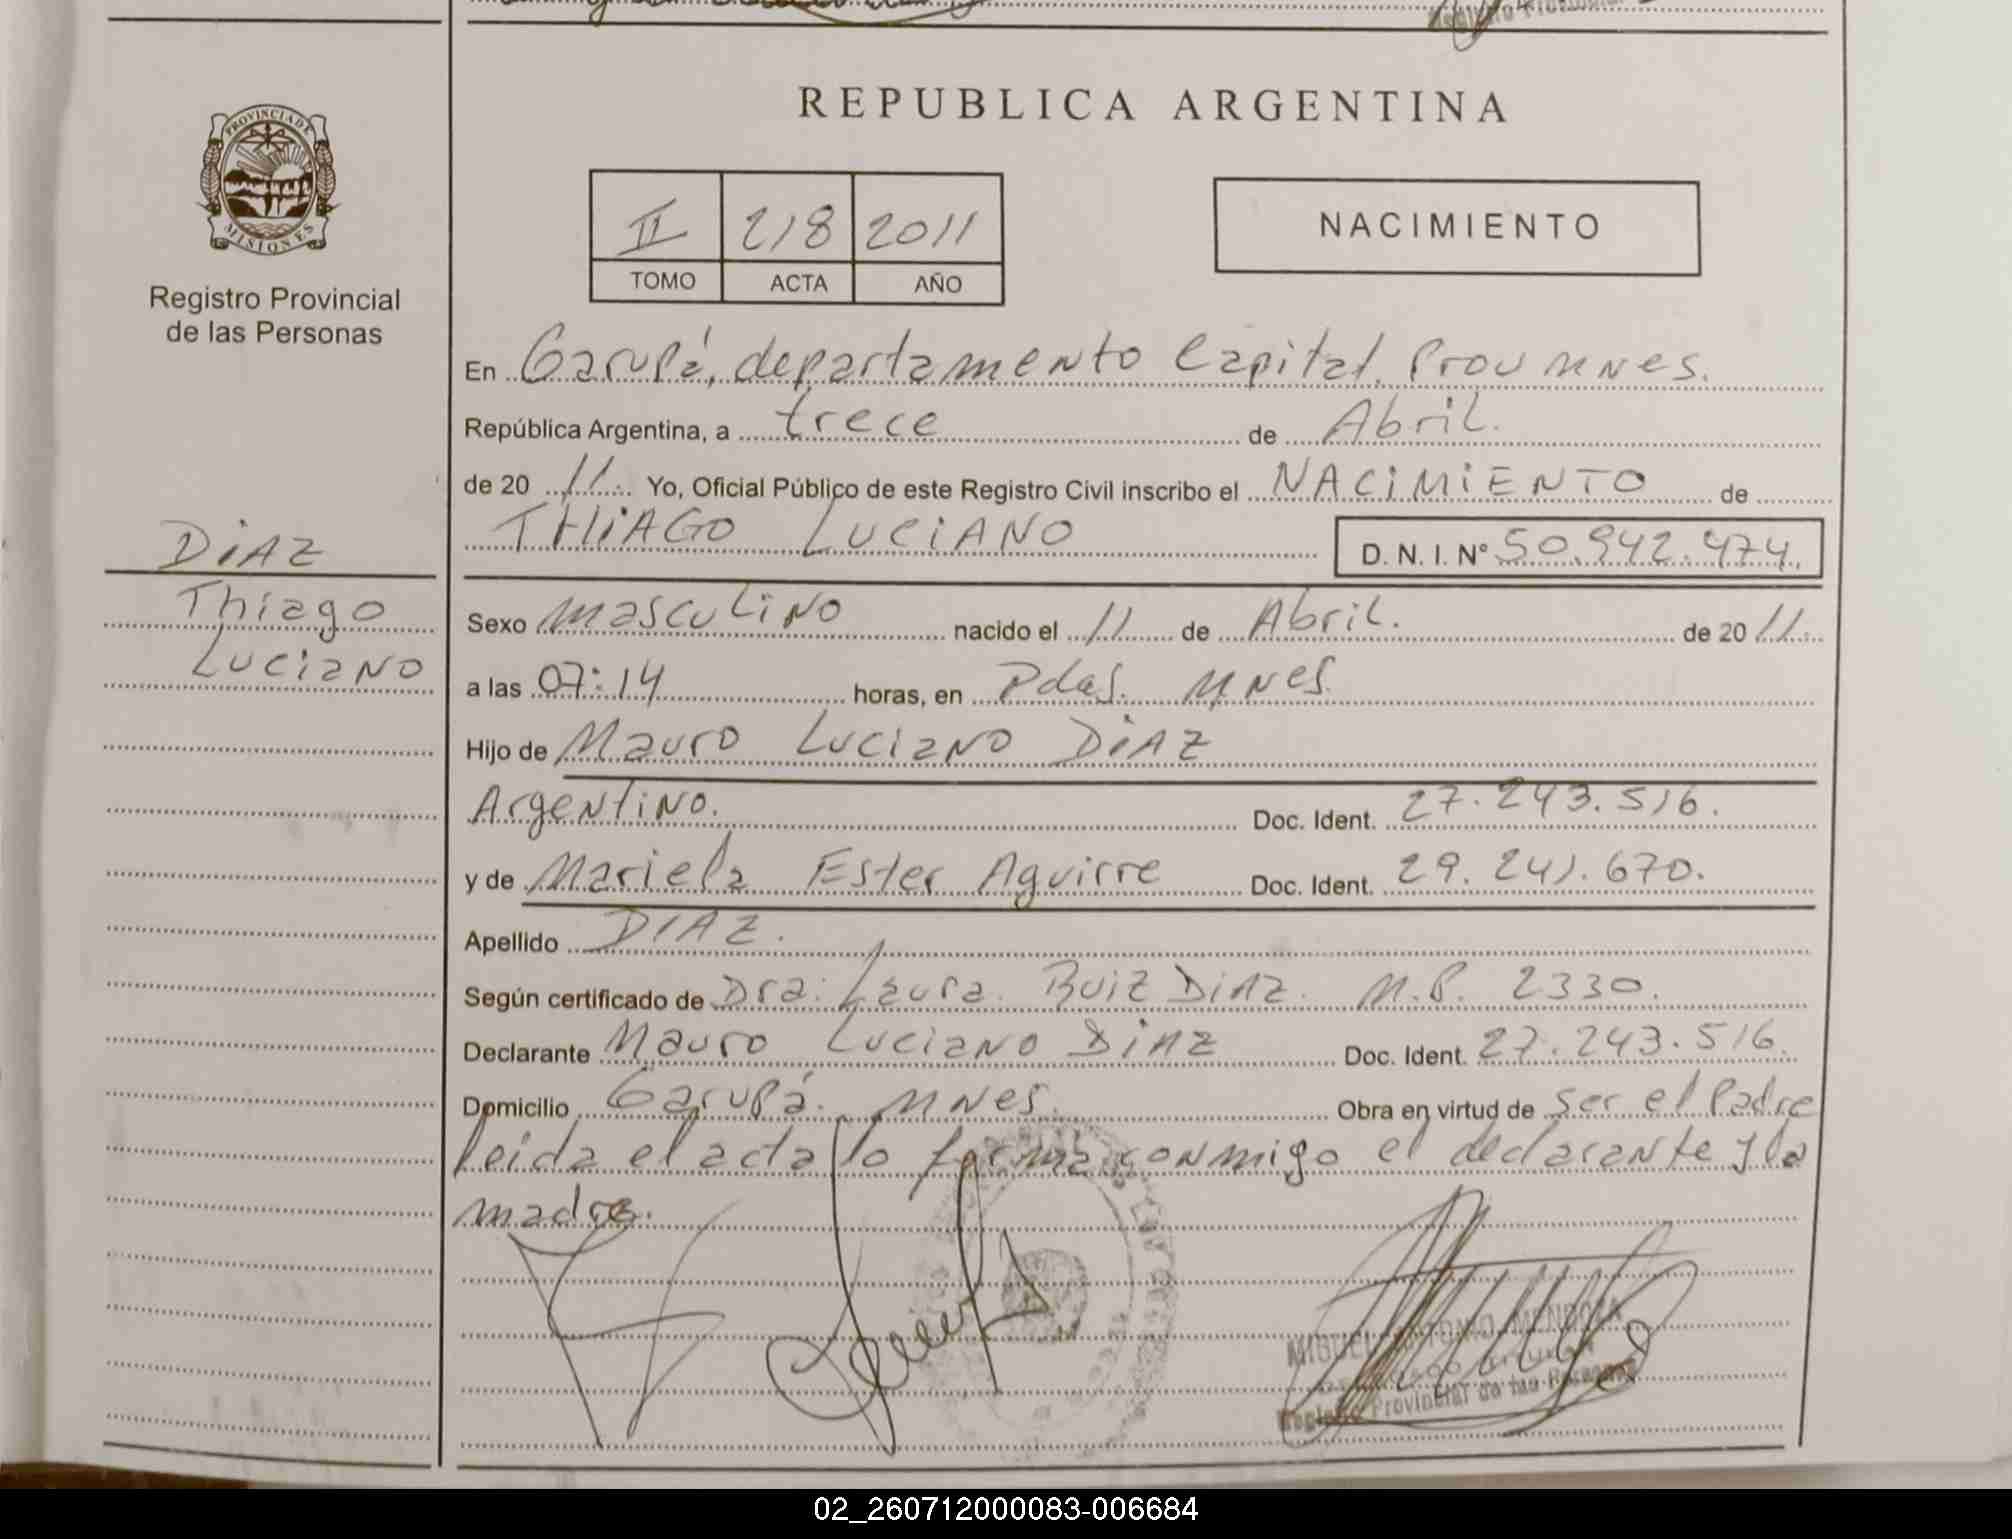 REPUBLICA ARGENTINA
PROVINCIA DE
MISIONES
Registro Provincial
de las Personas
II 218 2011
TOMO ACTA AÑO
NACIMIENTO
En Garupá, departamento Capital. Prov Mnes.
República Argentina, a trece de Abril.
de 20 11. Yo, Oficial Público de este Registro Civil inscribo el NACIMIENTO de
THIAGO LUCIANO D. N. I. Nº 50.942.474.
DIAZ
Thiago
Luciano
Sexo Masculino nacido el 11 de Abril. de 20 11.
a las 07:14 horas, en Pdas. Mnes.
Hijo de Mauro Luciano DIAZ
Argentino. Doc. Ident. 27.243.516.
y de Mariela Ester Aguirre Doc. Ident. 29.241.670.
Apellido DIAZ.
Según certificado de Dra. Laura Ruiz Diaz. M.P. 2330.
Declarante Mauro Luciano Diaz Doc. Ident. 27.243.516.
Domicilio Garupá. Mnes. Obra en virtud de ser el Padre
leida el acta lo firma conmigo el declarante y la
madre.
MIGUEL ANTONIO MENDOZA
Registro Provincial de las Personas
02_260712000083-006684